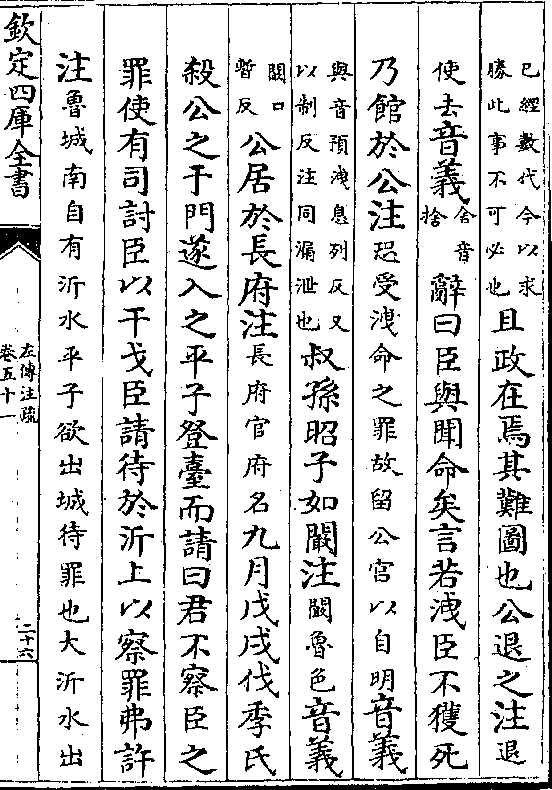 已經數代今以求
勝此事不可必也
且政在焉其難圖也公退之注退
使去音義
舍音
捨
辭曰臣與聞命矣言若洩臣不獲死
乃館於公注恐受洩命之罪故留公宮以自明音義
與音預洩息列反又
以制反注同漏泄也
叔孫昭子如闞注闞魯邑音義
闞口
暫反
公居於長府注長府官府名九月戊戌伐季氏
殺公之于門遂入之平子登臺而請曰君不察臣之
罪使有司討臣以干戈臣請待於沂上以察罪弗許
注魯城南自有沂水平子欲出城待罪也大沂水出
欽定四庫全書
左傳注疏
卷五十一
二十六